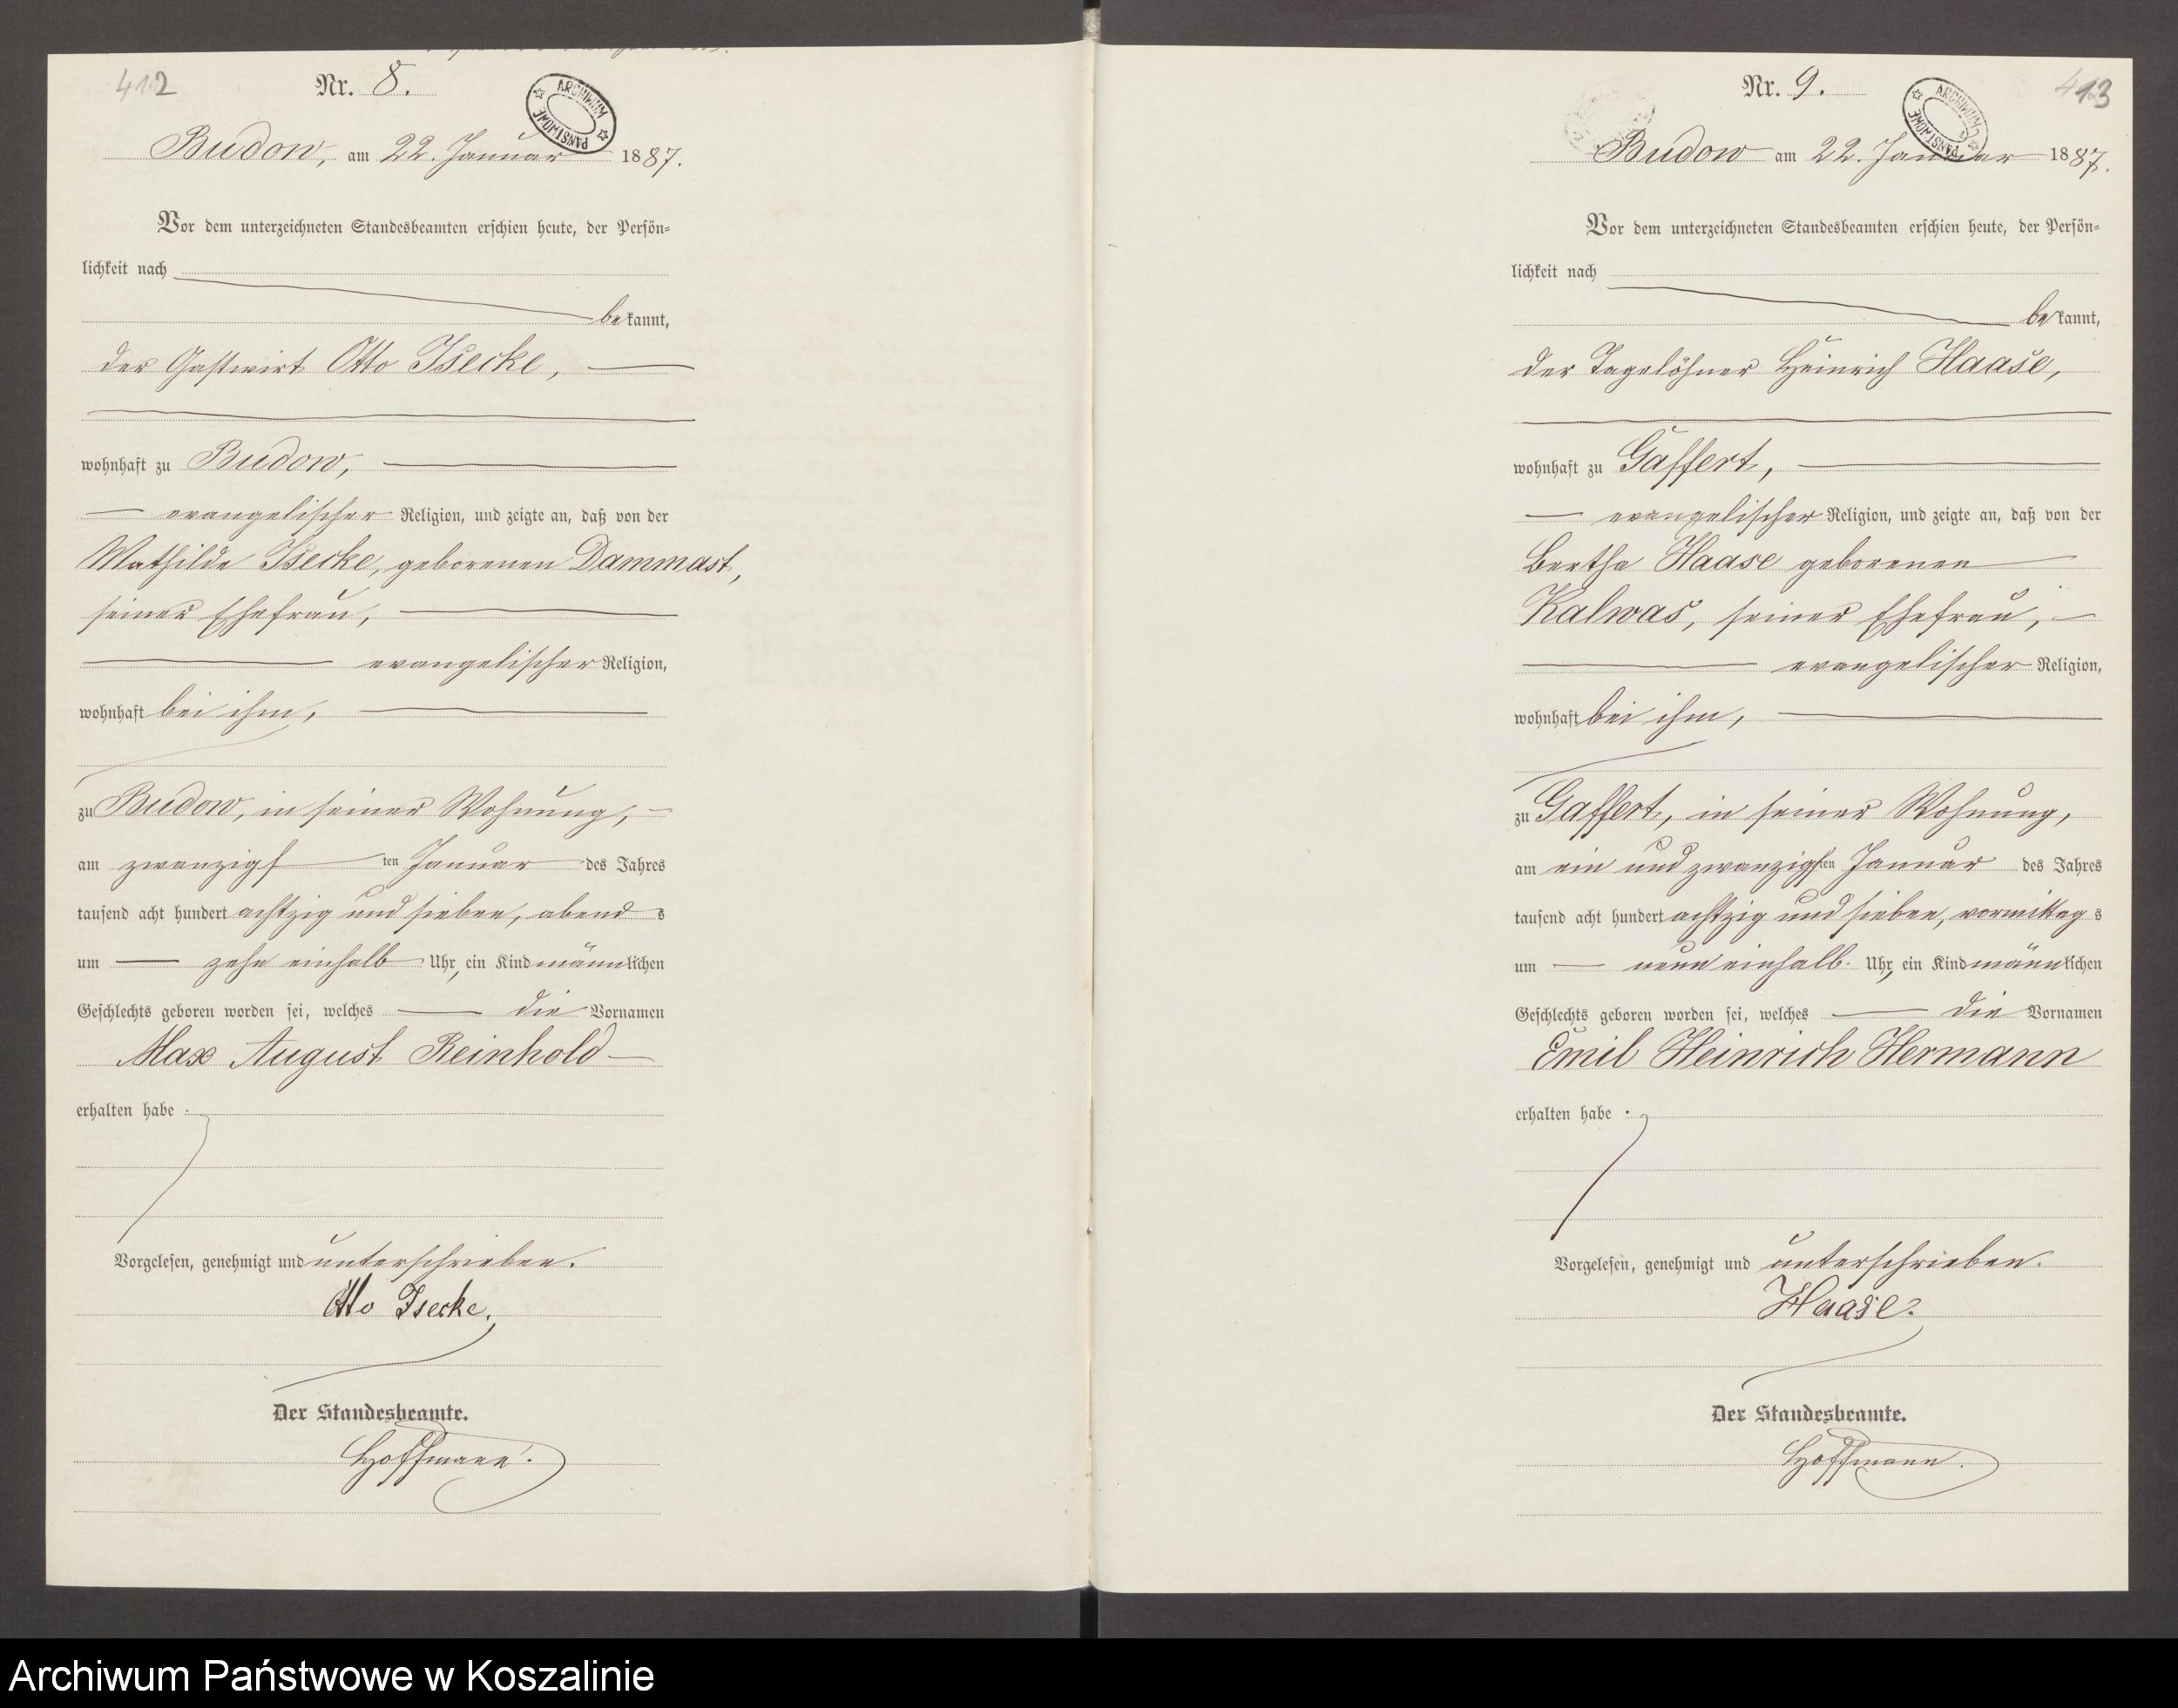 412
Nr. 8.
ARCHIWUM PAŃSTWOWE
Budow, am 22. Januar 1887.
Vor dem unterzeichneten Standesbeamten erschien heute, der Persön-
lichkeit nach
bekannt,
der Gastwirt Otto Isecke,
wohnhaft zu Budow,
evangelischer Religion, und zeigte an, daß von der
Mathilde Isecke, geborenen Dammast,
seiner Ehefrau,
evangelischer Religion,
wohnhaft bei ihm,
zu Budow, in seiner Wohnung,
am zwanzigsten Januar des Jahres
tausend acht hundert achtzig und sieben, abends
um zehn einhalb Uhr, ein Kind männlichen
Geschlechts geboren worden sei, welches die Vornamen
Max August Reinhold
erhalten habe.
Vorgelesen, genehmigt und unterschrieben.
Otto Isecke.
Der Standesbeamte.
Hoffmann.
413
Nr. 9.
ARCHIWUM PAŃSTWOWE
Budow am 22. Januar 1887.
Vor dem unterzeichneten Standesbeamten erschien heute, der Persön-
lichkeit nach
bekannt,
der Tagelöhner Heinrich Haase,
wohnhaft zu Gaffert,
evangelischer Religion, und zeigte an, daß von der
Bertha Haase geborenen
Kalwas, seiner Ehefrau,
evangelischer Religion,
wohnhaft bei ihm,
zu Gaffert, in seiner Wohnung,
am ein und zwanzigsten Januar des Jahres
tausend acht hundert achtzig und sieben, vormittags
um neun einhalb Uhr, ein Kind männlichen
Geschlechts geboren worden sei, welches die Vornamen
Emil Heinrich Hermann
erhalten habe.
Vorgelesen, genehmigt und unterschrieben.
Haase.
Der Standesbeamte.
Hoffmann.
Archiwum Państwowe w Koszalinie